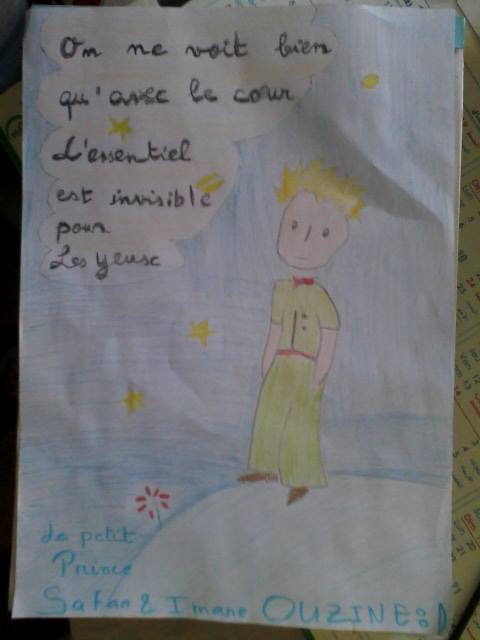 On ne voit bien
qu'avec le cour
L'essentiel
est invisible
pour
Les yeuse
Le petit
Prince
Safaa & Imane OUZINE :D